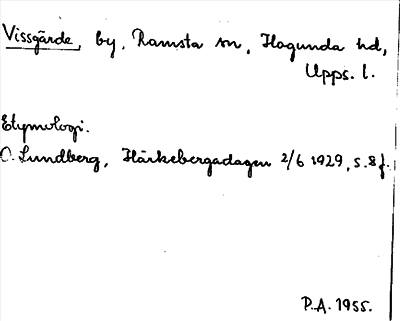 Vissgärde, by, Ramsta sn, Hagunda hd,
Upps. l.
Etymologi.
O. Lundberg, Härkebergadagen 2/6 1929, s. 8 f.
P.A. 1955.